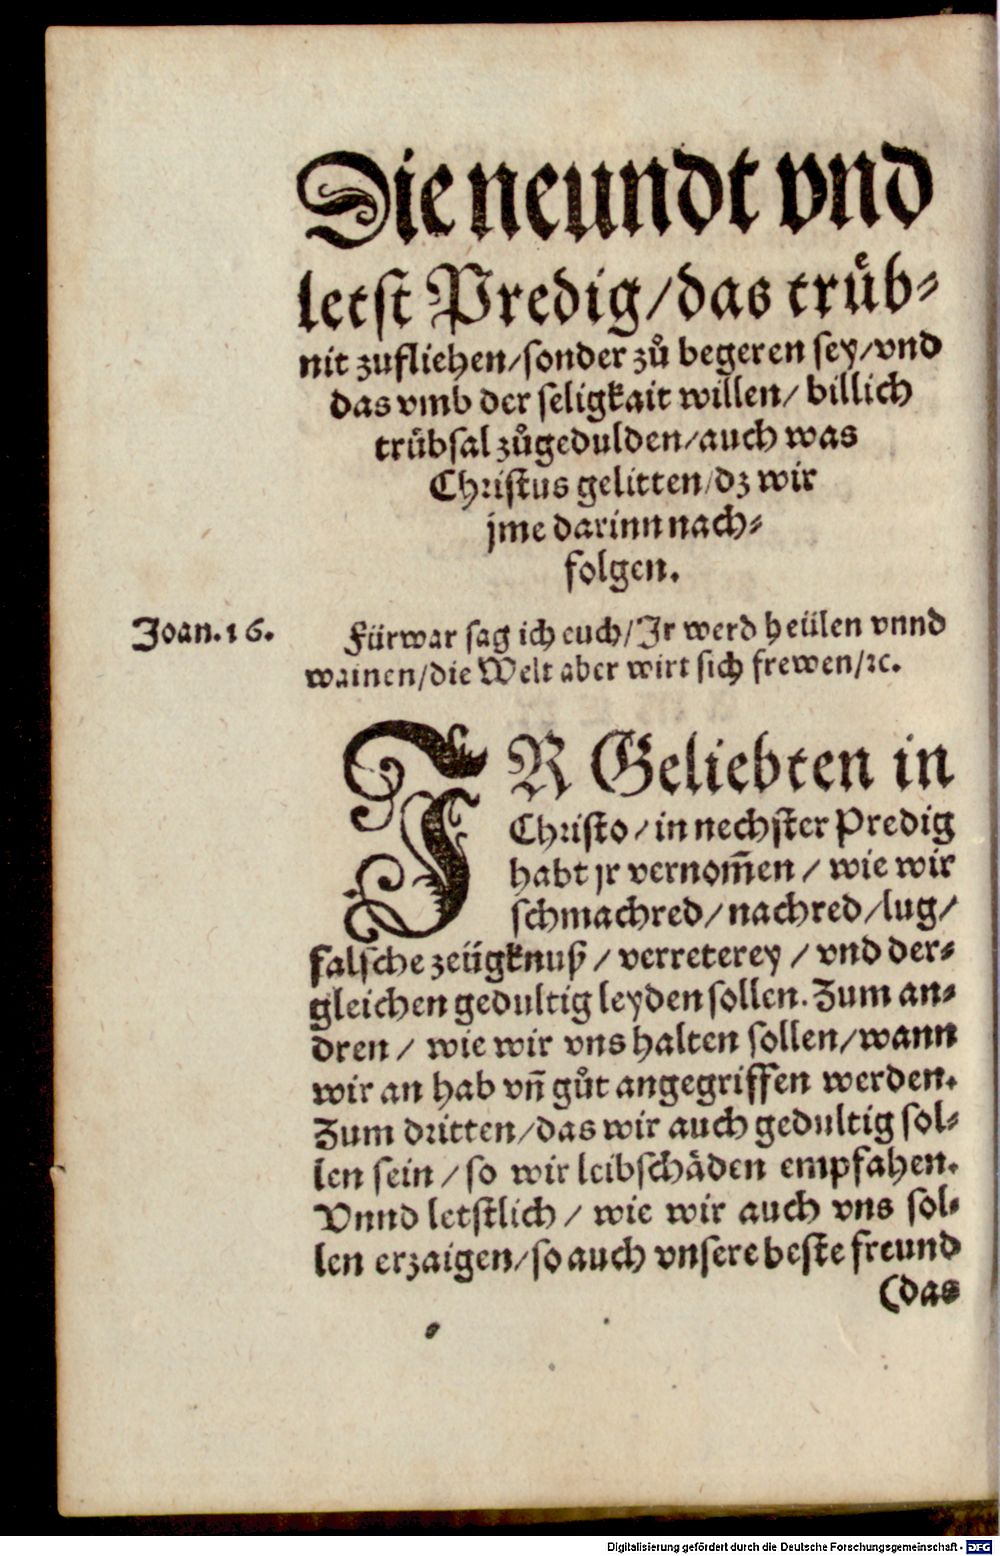 Die neundt vnd
letst Predig/das truͤb⸗
nit zufliehen/sonder zuͦ begeren sey/vnd
das vmb der seligkait willen/ billich
truͤbsal zuͦgedulden/auch was
Christus gelitten/dz wir
jme darinn nach⸗
folgen.
Joan.16.
Fürwar sag ich euch/Ir werd heülen vnnd
wainen/die Welt aber wirt sich frewen/ꝛc.
IR Geliebten in
Christo/in nechster Predig
habt jr vernom̃en/ wie wir
schmachred/nachred/lug/
falsche zeügknuß/ verreterey/ vnd der⸗
gleichen gedultig leyden sollen. Zum an⸗
dren/ wie wir vns halten sollen/wann
wir an hab vñ guͦt angegriffen werden.
Zum dritten/das wir auch gedultig sol⸗
len sein/so wir leibschäden empfahen.
Vnnd letstlich/ wie wir auch vns sol⸗
len erzaigen/so auch vnsere beste freund
(das
Digitalisierung gefördert durch die Deutsche Forschungsgemeinschaft - DFG